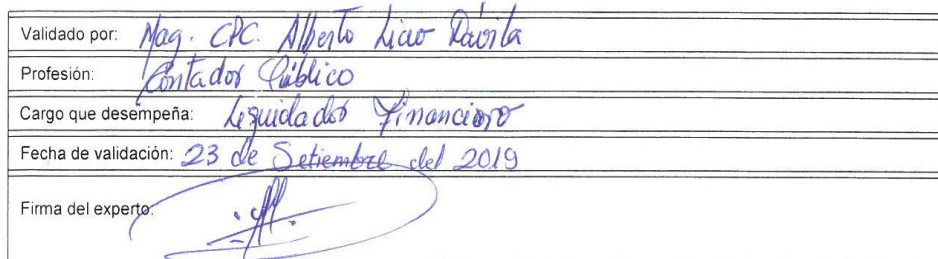 Validado por: Mag. CPC. Alberto Licao Dávila
Profesión: Contador Público
Cargo que desempeña: Liquidador Financiero
Fecha de validación: 23 de Setiembre del 2019
Firma del experto: